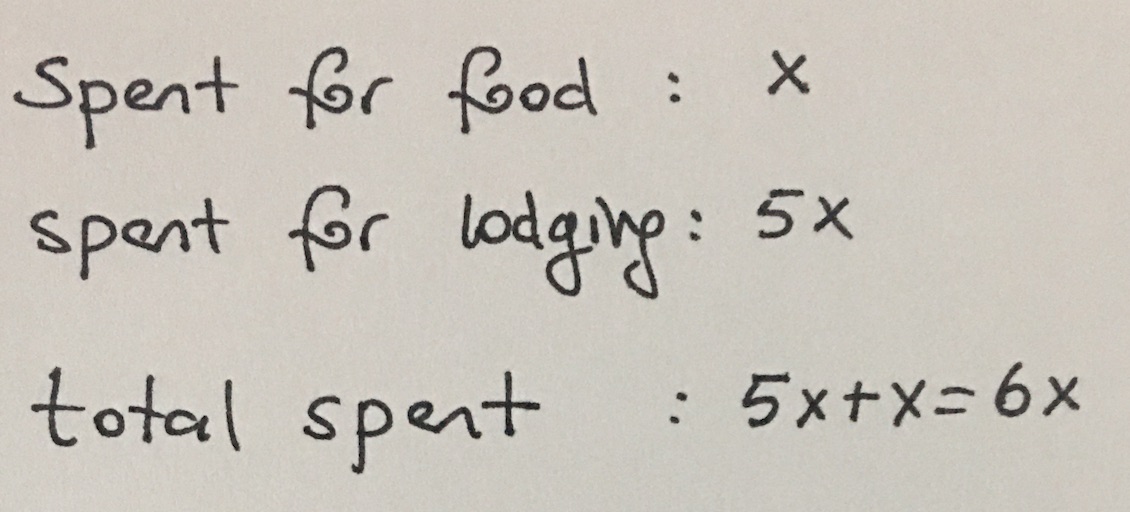 Spent for food : x
spent for lodging : 5x
total spent : 5x+x=6x